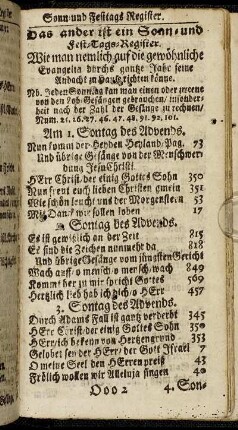 Sonn und Festags Register.
Das ander ist ein Sonn-und
Fest-Tags-Register.
Wie man nemlich auf die gewöhnliche
Evangelia durchs gantze Jahr seine
Andacht zu Haus richten könne.
Nb. Jeden Sonntag kan man einen oder
von den Lob-Gesängen gebrauchen, insonder-
heit nach der Zahl der Gesänge zu rechnen,
Num. 21. 16. 27. 46. 47. 48. 91. 92. 101.
Am 1. Sontag des Advends.
Nun komm der Heyden Heyland. Pag. 73
Und übrige Gesänge von der Menschwer-
dung JEsu Christi.
HErr Christ der einig Gottes Sohn 350
Nun freut euch lieben Christen gmein 351
Wie schön leucht uns der Morgenstern 53
Mit Danck wir sollen loben 17
2. Sontag des Advends.
Es ist gewißlich an der Zeit 815
Es sind die Zeichen nunmehr da 818
Und übrige Gesänge vom jüngsten Gericht
Wach auf, o mensch, o mensch, wach 849
Kommt her zu mir spricht Gottes 569
Hertzlich lieb hab ich dich, o HErr 457
3. Sontag des Advends.
Durch Adams Fall ist gantz verderbt 345
HErr Christ, der einig Gottes Sohn 350
HErr, ich bekenn von Hertzengrund 353
Gelobet sey der HErr, der Gott Israel 7
O meine Seel den HErren preiß 43
Frölich wollen wir Alleluja singen 40
Ooo 2 4. Son-